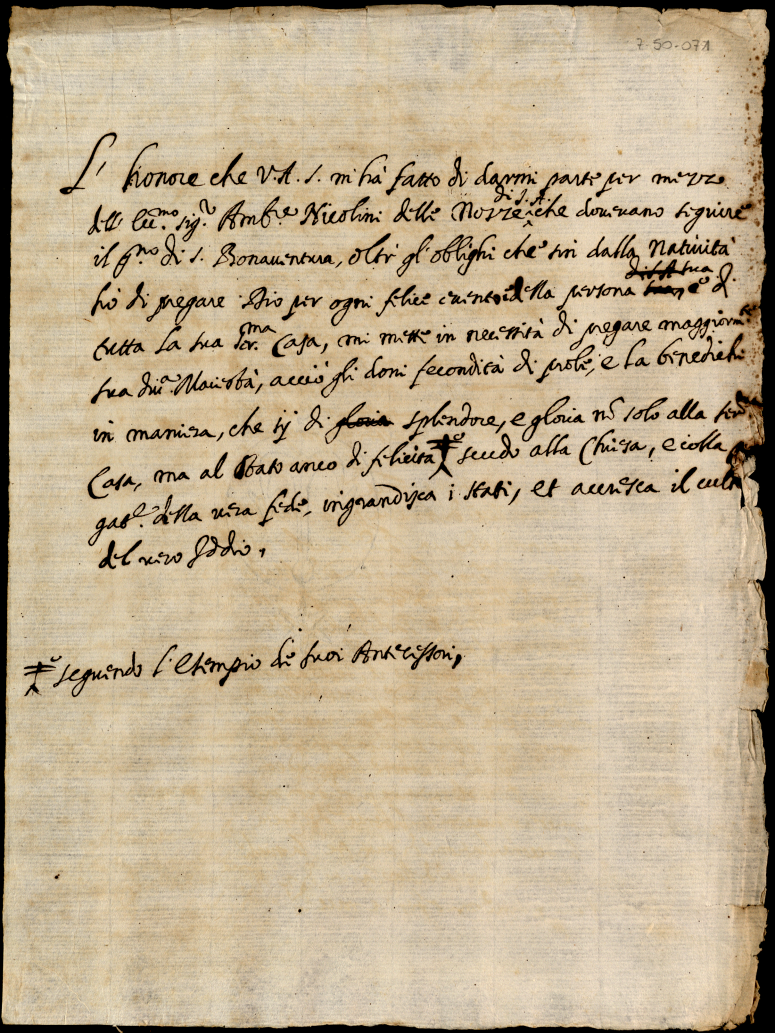 7-50-071
L' honore che V.A. S. m' ha fatto di darmi parte per mezzo
di S. A.
dell' Ecc.mo sig.r Amb.re Nicolini delle Nozze che doveuano seguire
il g.no di S. Bonauentura, oltr' gl' oblighi che sin dalla Natiuità
di S. A. sua
hò di pregare Dio per ogni felice euento della persona sua, e di
tutta la sua Ser.ma Casa, mi mette in necessità di pregare maggiorm.te
sua diu.a Maiestà, acciò gli doni fecondità di prole, e la benedichi
in maniera, che sij di gloria splendore, e gloria nõ solo alla Ser.ma
Casa, ma al stato anco di felicità scudo alla Chiesa, e colla
gat.e della uera fede, ingrandisca i stati, et accresca il culto
del uero Iddio,
seguendo l' esempio de suoi Antecessori,